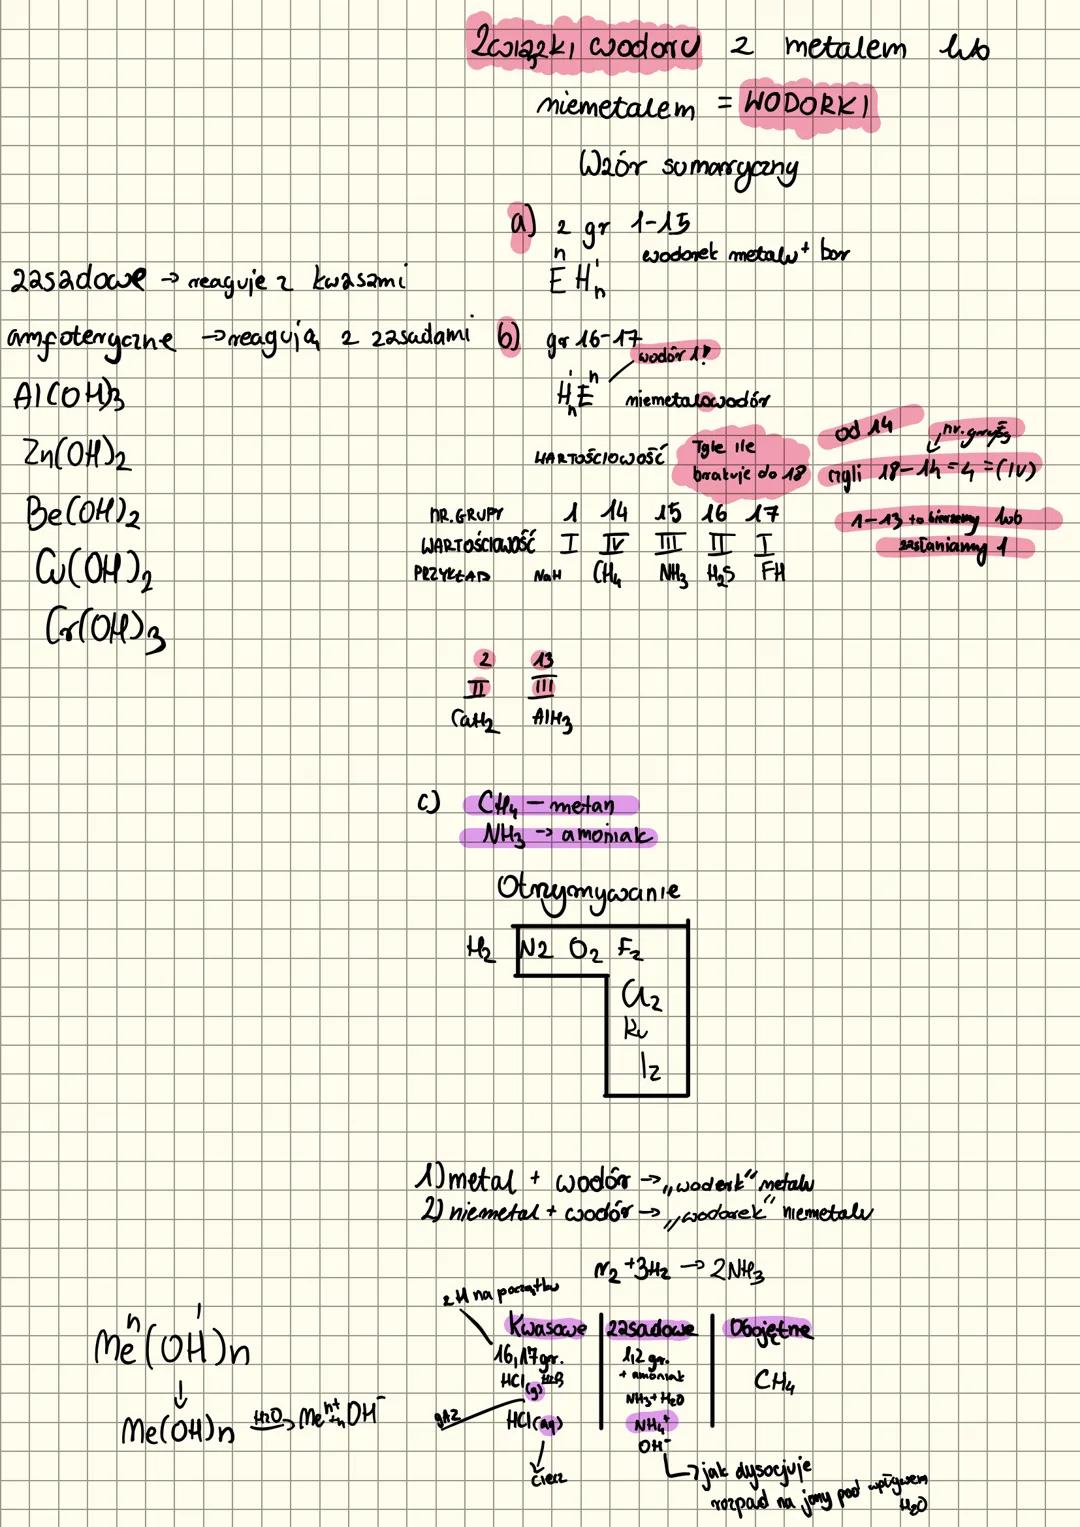 Związki wodoru z metalem lub
niemetalem = WODORKI
Wzór sumaryczny
a) z gr 1-15
wodorek metalu + bor
n I
E Hn
zasadowe → reaguje z kwasami
amfoteryczne → reagują z zasadami
Al(OH)3
Zn(OH)2
Be(OH)2
Cu(OH)2
Cr(OH)3
b) gr 16-17
wodór 1!
I n
HnE
niemetalowodór
WARTOŚCIOWOŚĆ Tyle ile
brakuje do 18
od 14
nr. grupy
czyli 18-14=4=(IV)
1-13 to bierzemy lub
zasłaniamy 1
NR.GRUPY 1 14 15 16 17
WARTOŚCIOWOŚĆ I IV III II I
PRZYKŁAD NaH CH4 NH3 H2S FH
2 13
II III
CaH2 AlH3
c) CH4 – metan
NH3 → amoniak
Otrzymywanie
H2 N2 O2 F2
Cl2
I2
1) metal + wodór → „woderk" metalu
2) niemetal + wodór → „wodorek" niemetalu
N2 + 3H2 → 2NH3
z H na początku
Kwasowe
16,17 gr.
HCl(g) H2S
gaz
HCl(aq)
ciecz
zasadowe
1,2 gr.
+ amoniak
NH3 + H2O
NH4+
OH-
jak dysocjuje
rozpad na jony pod wpływem
H2O
Obojętne
CH4
n I
Me(OH)n
↓
Me(OH)n H2O→ Me n+ + n OH-